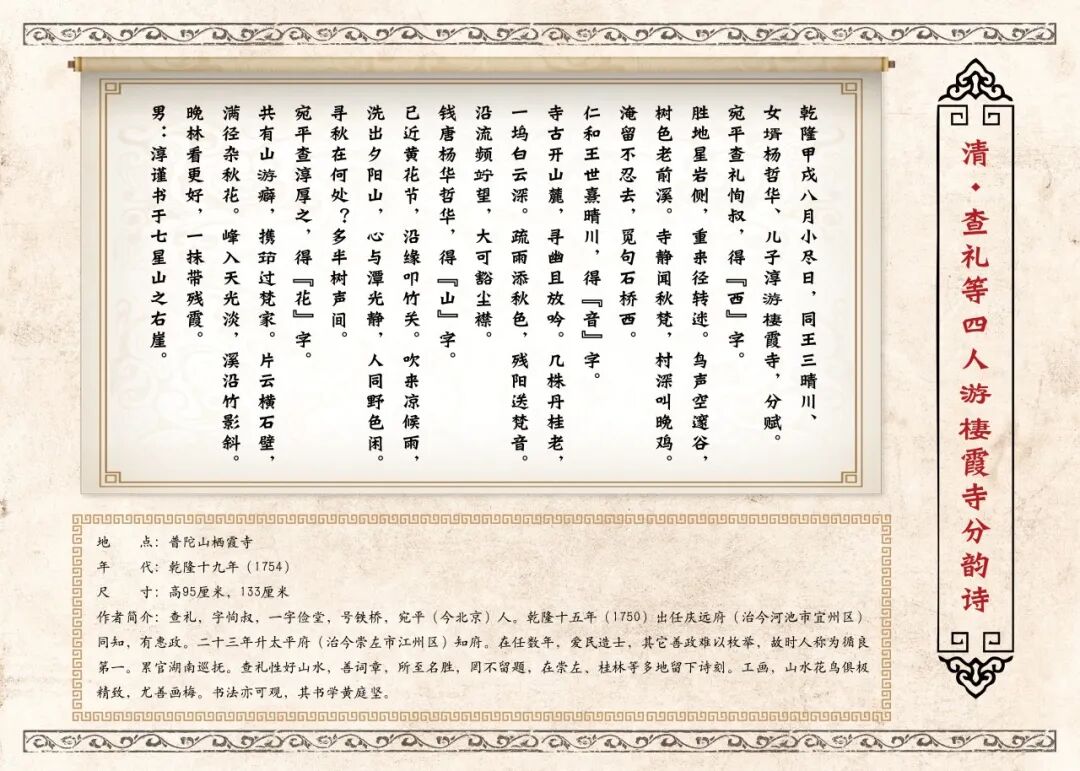 清·查礼等四人游棲霞寺分韵诗
乾隆甲戌八月小尽日，同王三晴川、
女壻杨哲华、儿子淳游棲霞寺，分赋。
宛平查礼恂叔，得『西』字。
胜地星岩侧，重来径转迷。鸟声空邃谷，
树色老前溪。寺静闻秋梵，村深叫晚鸡。
淹留不忍去，觅句石桥西。
仁和王世熹晴川，得『音』字。
寺古开山麓，寻幽且放吟。几株丹桂老，
一坞白云深。疏雨添秋色，残阳送梵音。
沿流频竚望，大可豁尘襟。
钱唐杨华哲华，得『山』字。
已近黄花节，沿缘叩竹关。吹来凉候雨，
洗出夕阳山，心与潭光静，人同野色闲。
寻秋在何处？多半树声间。
宛平查淳厚之，得『花』字。
共有山游癖，携筇过梵家。片云横石壁，
满径杂秋花。峰入天光淡，溪沿竹影斜。
晚林看更好，一抹带残霞。
男：淳谨书于七星山之右崖。
地　　点：普陀山栖霞寺
年　　代：乾隆十九年（1754）
尺　　寸：高95厘米，133厘米
作者简介：查礼，字恂叔，一字俭堂，号铁桥，宛平（今北京）人。乾隆十五年（1750）出任庆远府（治今河池市宜州区）
同知，有惠政。二十三年升太平府（治今崇左市江州区）知府。在任数年，爱民造士，其它善政难以枚举，故时人称为循良
第一。累官湖南巡抚。查礼性好山水，善词章，所至名胜，罔不留题，在崇左、桂林等多地留下诗刻。工画，山水花鸟俱极
精致，尤善画梅。书法亦可观，其书学黄庭坚。